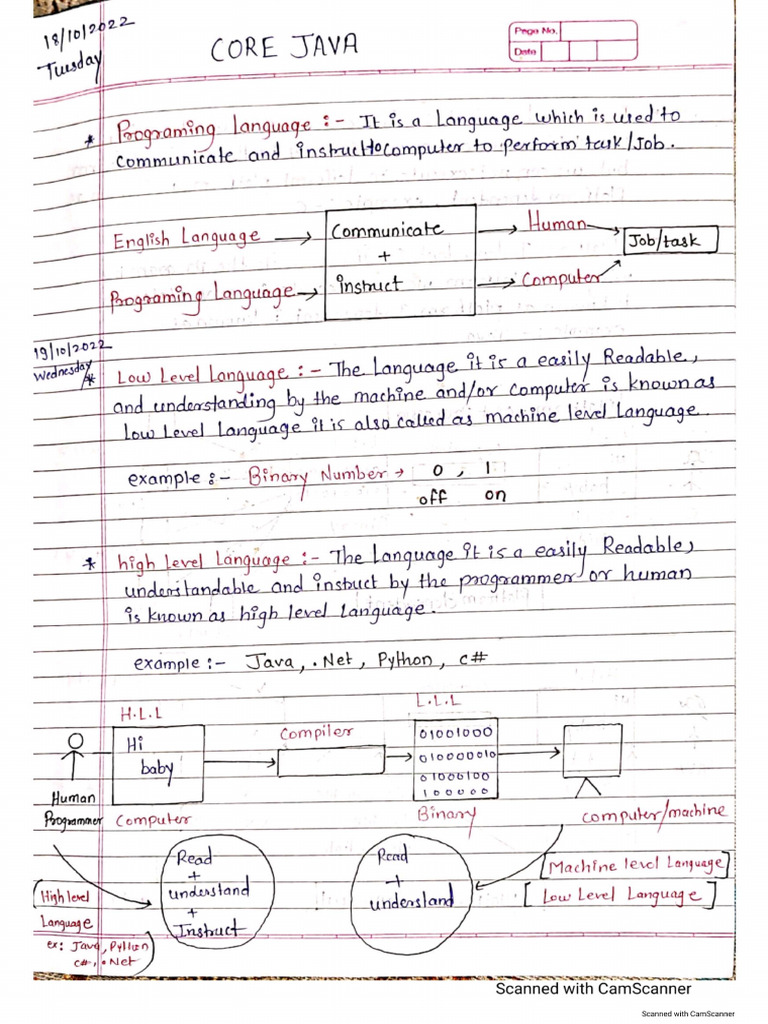 18/10/2022
Tuesday
CORE JAVA
Page No.
Date
* Programing Language :- It is a Language which is used to
communicate and instruct to computer to perform task/Job.
English Language → Communicate → Human → Job/task
+
Programing Language → instruct → Computer
19/10/2022
Wednesday
* Low Level Language :- The Language it is a easily Readable,
and understanding by the machine and/or computer is known as
low Level Language it is also called as machine level Language.
example :- Binary Number → 0 , 1
off on
* high Level Language :- The Language it is a easily Readable,
understandable and instruct by the programmer or human
is known as high level Language.
example :- Java, .Net, Python, c#
H.L.L
L.L.L
Compiler
Hi
baby
01001000
010000010
01000100
100000
Human
Programmer
Computer
Binary
computer/machine
Read
+
understand
+
Instruct
Read
+
understand
[Machine level Language]
[Low Level Language]
High level
Language
ex: Java, Python
c#, .Net
Scanned with CamScanner
Scanned with CamScanner